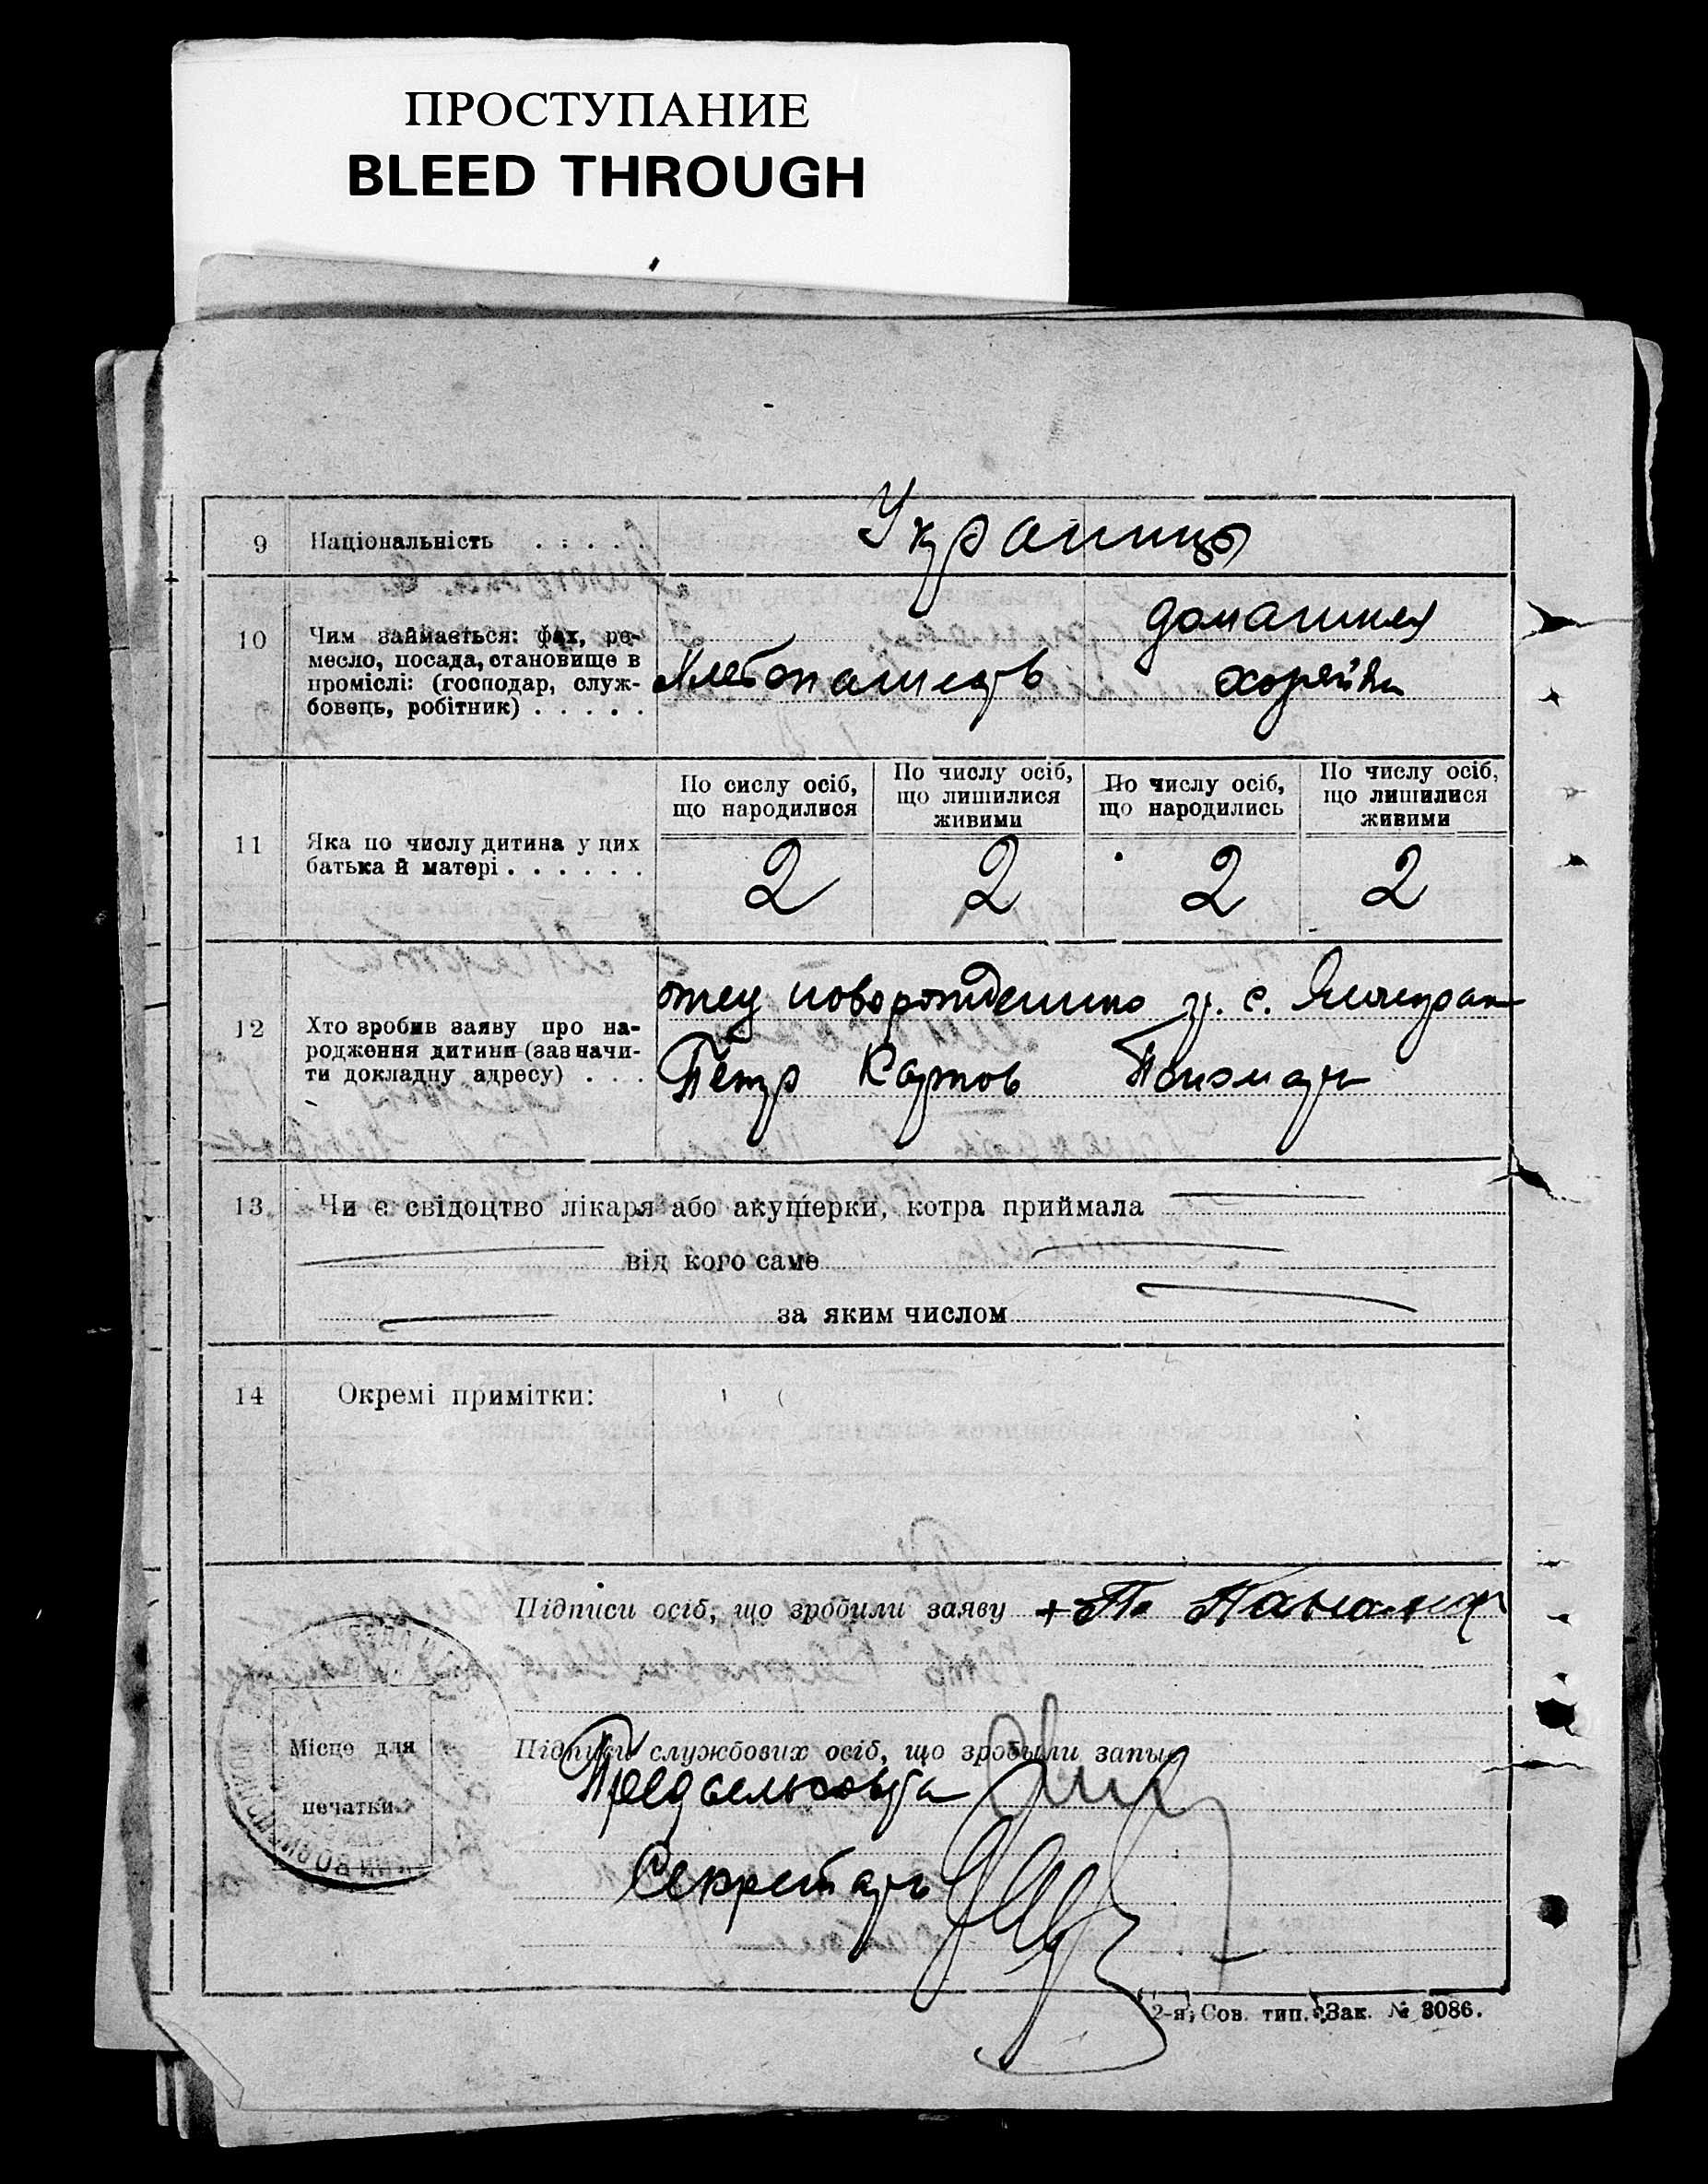 ПРОСТУПАНИЕ
BLEED THROUGH
9 Національність . . . . .
Українці
10 Чим займається: фах, ре-
месло, посада, становище в
проміслі: (господар, служ-
бовець, робітник) . . . . .
Хлебопашець
домашняя
хозяйка
11 Яка по числу дитина у цих
батька й матері . . . . . .
По сислу осіб,
що народилися
По числу осіб,
що лишилися
живими
По числу осіб,
що народились
По числу осіб,
що лишилися
живими
2 2 2 2
12 Хто зробив заяву про на-
родження дитини (зазначи-
ти докладну адресу) . . .
отец новорожденно г. с.
Петр Карпов
13 Чи є свідоцтво лікаря або акушерки, котра приймала
від кого саме
за яким числом
14 Окремі примітки:
Підписи осіб, що зробили заяву + П.
Місце для
печатки
Підписи службових осіб, що зробыли запыс
Предсельсовета
Секретарь
2-я, Сов. тип. Зак. № 3086.